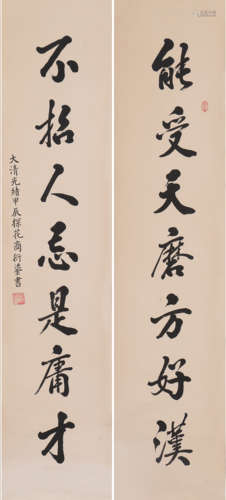 能受天磨方好漢
不招人忌是庸才
大清光緒甲辰探花商衍鎏書